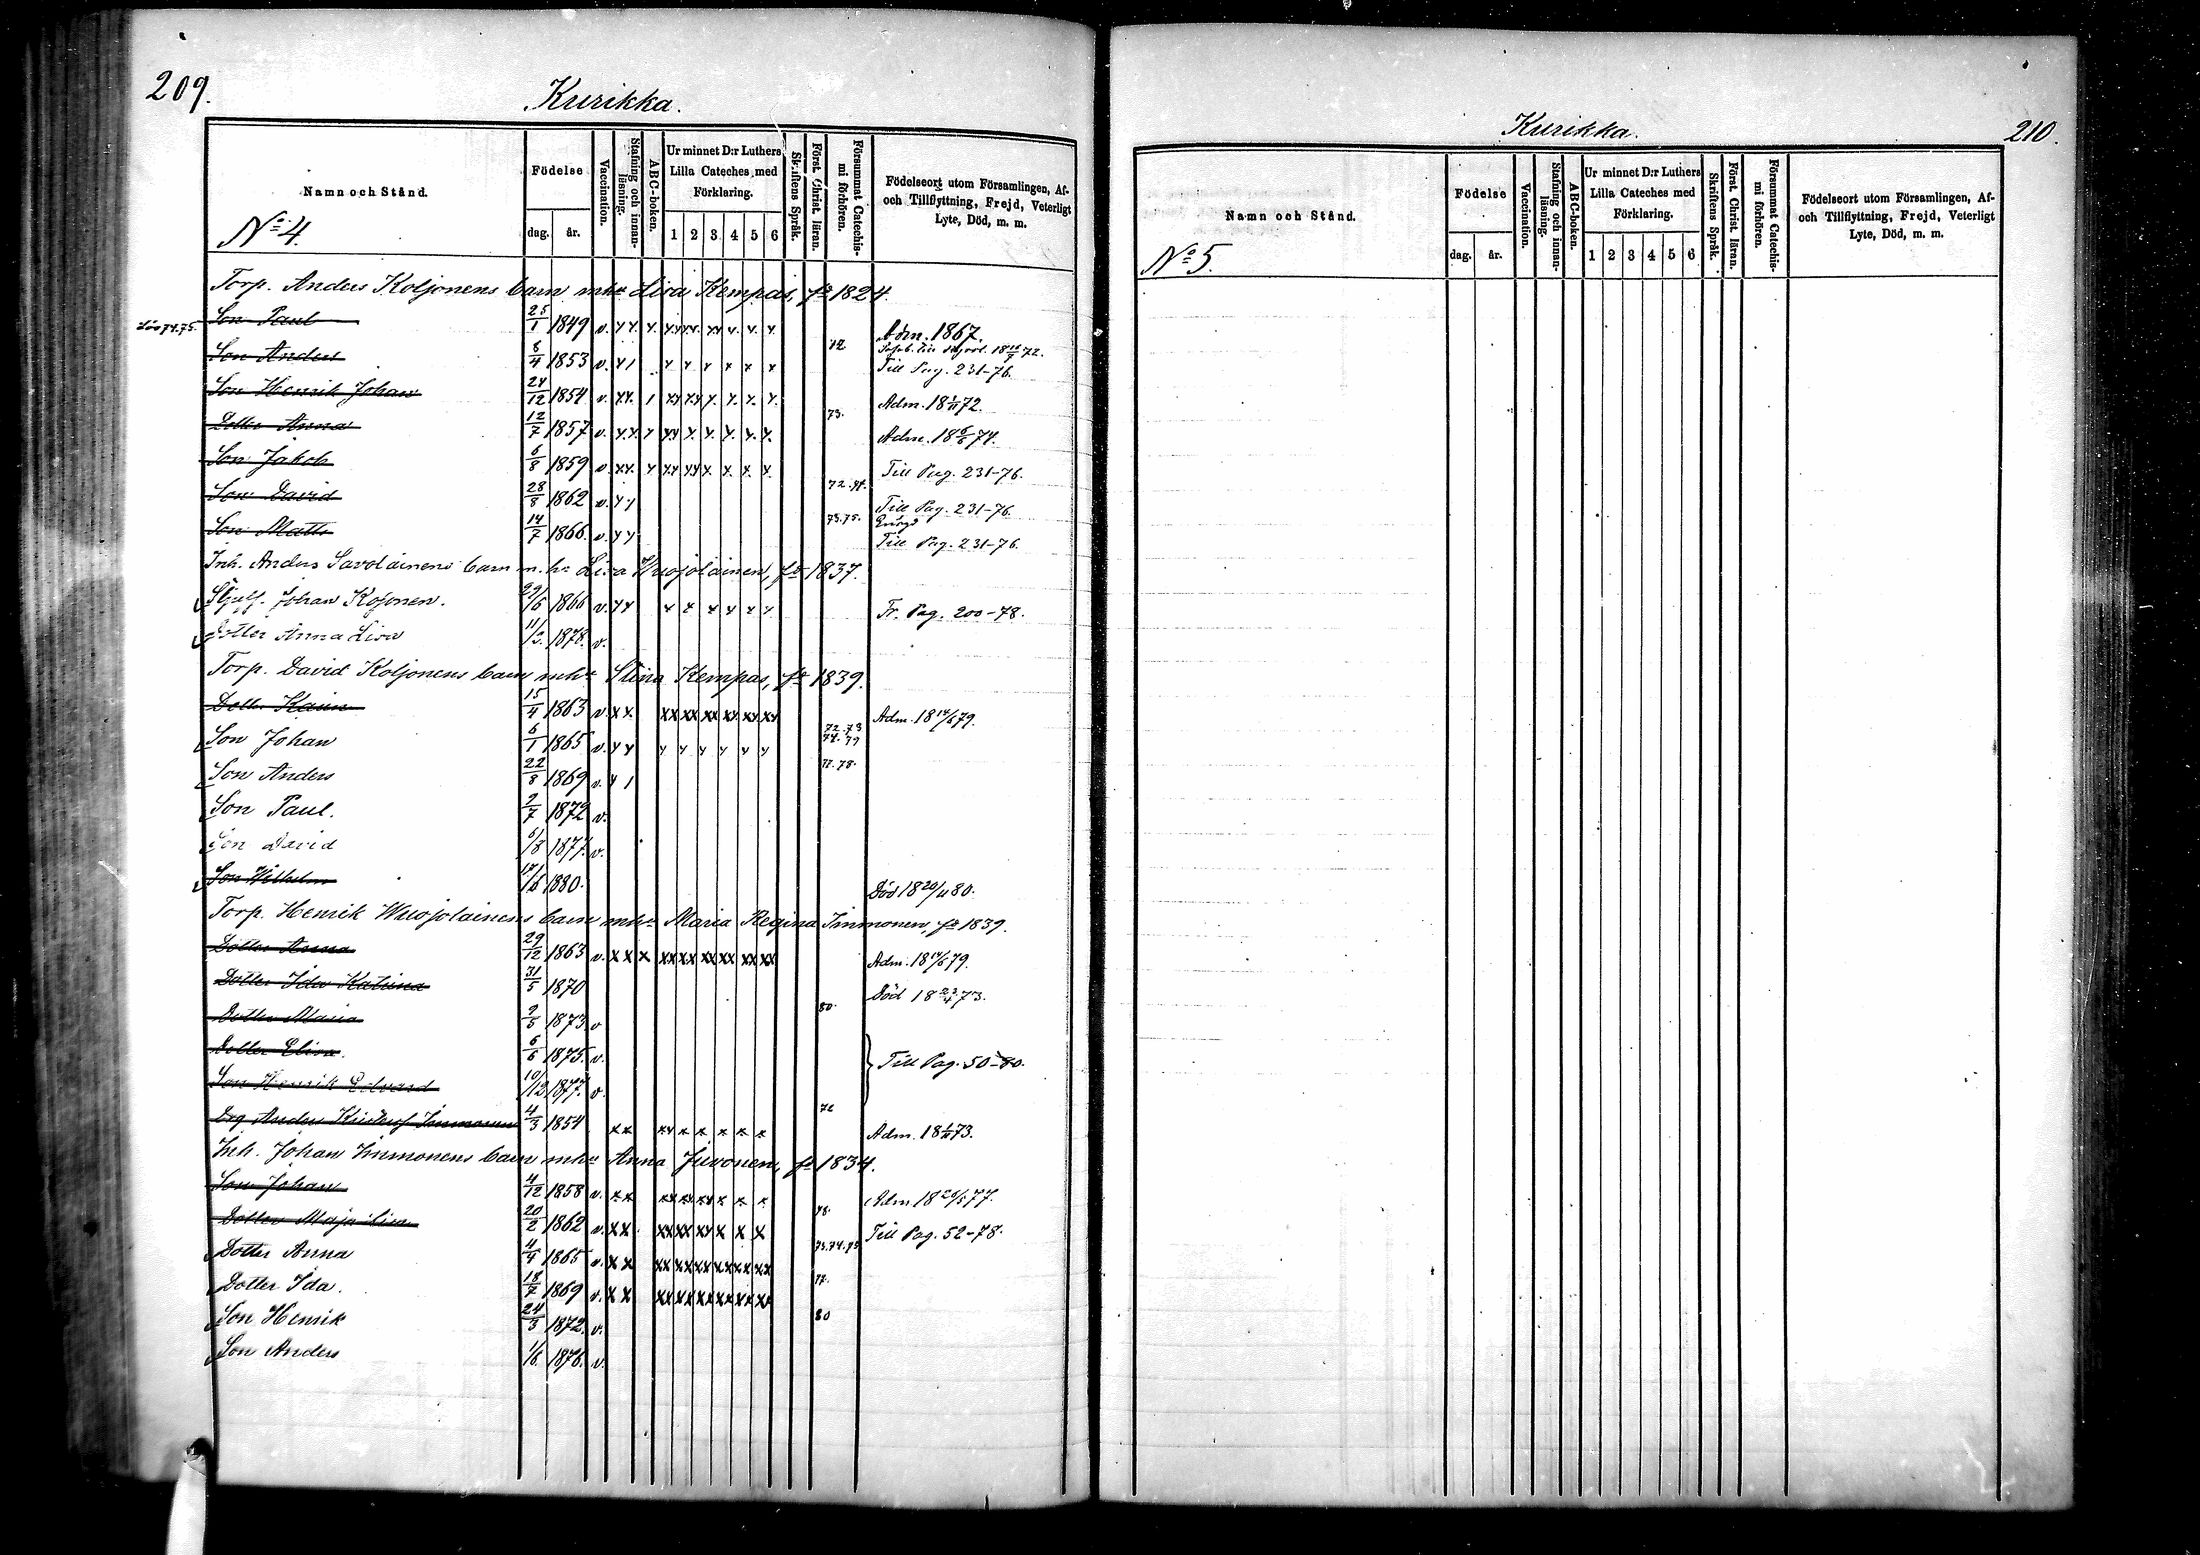 209.
Kurikka.
Namn och Stånd.
Födelse
dag.
år.
Vaccination.
Stafning och innanläsning.
ABC-boken.
Ur minnet D:r Luthers
Lilla Cateches med
Förklaring.
1 2 3 4 5 6
Skriftens Språk.
Först. Christ. läran.
Försummat Catechismi förhören.
Födelseort utom Församlingen, Af-
och Tillflyttning, Frejd, Veterligt
Lyte, Död, m. m.
No 4.
Torp. Anders Koljonens barn mhu Lisa Kempas, fr 1824.
Son Paul 25/1 1849 v. Adm. 1867.
Son Anders 8/4 1853 v. 72 Till Pag. 231-76.
Son Henrik Johan 24/12 1854 v. Adm. 18 1/11 72.
Dotter Anna 12/7 1857 v. 73. Adm. 18 6/6 74.
Son Jakob 6/8 1859 v. Till Pag. 231-76.
Son David 28/8 1862 v. 72. Till Pag. 231-76.
Son Matts 14/7 1866 v. 73.75. Till Pag. 231-76.
Inh. Anders Savolainens barn m. hu Lisa Wuojolainen, fr 1837.
Styff. Johan Kojonen. 29/6 1866 v. Fr. Pag. 200-78.
Dotter Anna Lisa 11/2. 1878. v.
Torp. David Koljonens barn mhu Stina Kempas, fr 1839.
Dotter Karin 15/4 1863 v. Adm. 18 14/6 79.
Son Johan 6/1 1865 v. 72.73 74.77
Son Anders 22/8 1869 v. 77.78.
Son Paul. 2/7 1872 v.
Son David 5/8 1877. v.
Son Wilhelm 17/6 1880. Död 18 20/11 80.
Torp. Henrik Wuojolainens barn mhu Maria Regina Immonen, fr 1839.
Dotter Anna 29/12 1863 v. Adm. 18 14/6 79.
Dotter Ida Katrina 31/5 1870 Död 18 23/4 73.
Dotter Maria 9/5 1873 v 80.
Dotter Elisa. 6/6 1875. v.
Till Pag. 50-80.
Son Henrik Edvard 10/12 1877. v.
Drg Anders Kristof Immonen 4/3 1854 72 Adm. 18 1/11 73.
Inh. Johan Immonens barn mhu Anna Juvonen, fr 1834.
Son Johan 4/12 1858 v. Adm. 18 20/5 77.
Dotter Maja Lisa 20/2 1862 v. 78. Till Pag. 52-78.
Dotter Anna 4/4 1865 v. 73.74.75
Dotter Ida. 18/7 1869 v. 77.
Son Henrik 24/3 1872. v. 80
Son Anders 1/6. 1876. v.
Kurikka.
210.
Namn och Stånd.
Födelse
dag.
år.
Vaccination.
Stafning och innanläsning.
ABC-boken.
Ur minnet D:r Luthers
Lilla Cateches med
Förklaring.
1 2 3 4 5 6
Skriftens Språk.
Först. Christ. läran.
Försummat Catechismi förhören.
Födelseort utom Församlingen, Af-
och Tillflyttning, Frejd, Veterligt
Lyte, Död, m. m.
No 5.